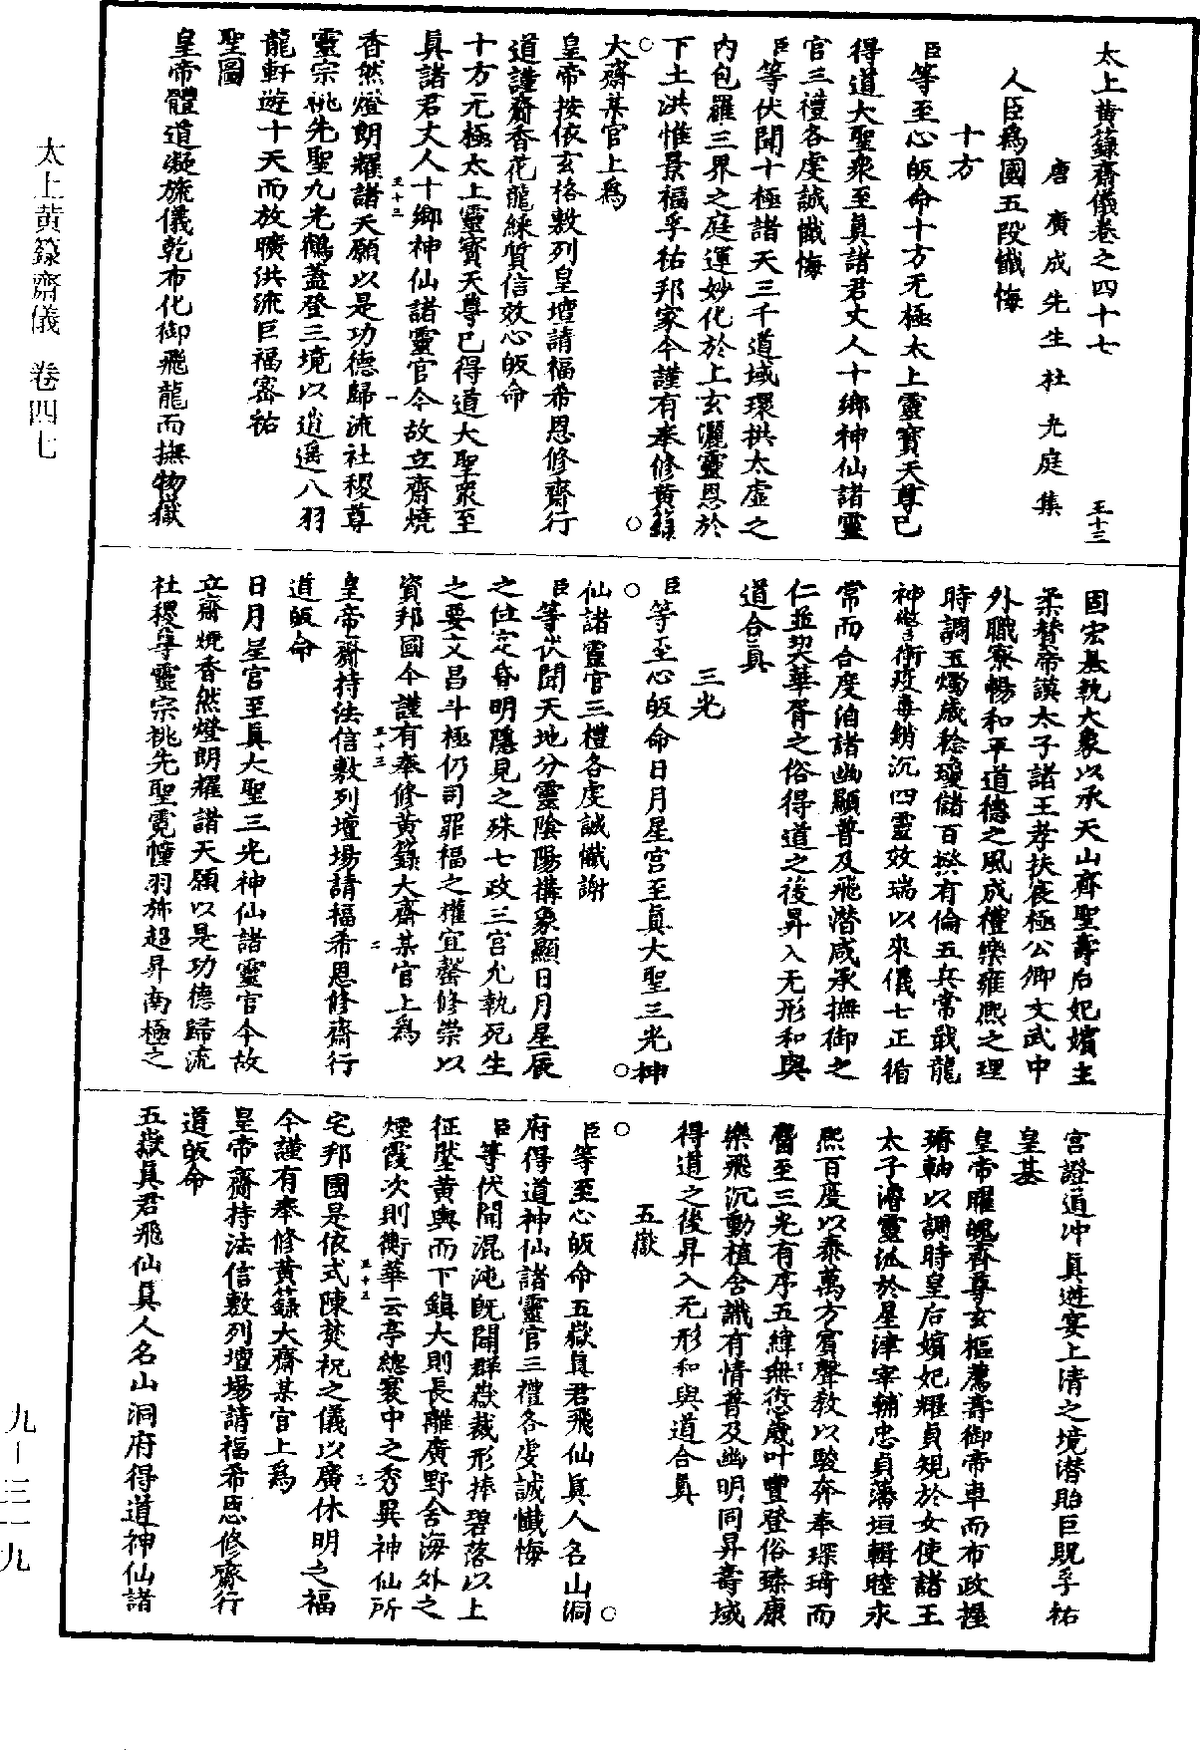 太上黃籙齋儀卷之四十七
王十三
唐廣成先生杜光庭集
人臣爲國五段懺悔
十方
臣等至心皈命十方无極太上靈寶天尊已
得道大聖衆至眞諸君丈人十鄉神仙諸靈
官三禮各虔誠懺悔
臣等伏聞十極諸天三千道域環拱太虛之
內包羅三界之庭運妙化於上玄灑靈恩於
下土洪惟景福孚祐邦家今謹有奉修黃籙
大齋某官上爲
皇帝按依玄格敷列皇壇請福希恩修齋行
道謹齋香花龍綵質信效心皈命
十方元極太上靈寶天尊已得道大聖衆至
眞諸君丈人十鄉神仙諸靈官今故立齋燒
王十三
一
香然燈朗耀諸天願以是功德歸流社稷尊
靈宗祧先聖九光鶴蓋登三境以逍遥八羽
龍軒遊十天而放曠洪流巨福密祐
聖圖
皇帝體道凝旒儀乾布化御飛龍而撫物嶽
固宏基執大象以承天山齊聖壽后妃嬪主
柔賛帝謨太子諸王孝扶宸極公卿文武中
外職寮暢和平道德之風成禮樂雍熙之理
時調五燭歲稔瓊儲百揆有倫五兵常戢龍
神警衛疫毒銷沉四靈效瑞以來儀七正循
常而合度洎諸幽顯普及飛潜咸承撫御之
仁並契華胥之俗得道之後昇入无形和與
道合眞
三光
臣等至心皈命日月星宫至眞大聖三光神
仙諸靈官三禮各虔誠懺謝
臣等伏聞天地分靈陰陽搆象顯日月星辰
之位定昏明隱見之殊七政三宫允執死生
之要文昌斗極仍司罪福之權宜罄修崇以
資邦國今謹有奉修黃籙大齋某官上爲
王十三
二
皇帝齋持法信敷列壇場請福希恩修齋行
道皈命
日月星宫至眞大聖三光神仙諸靈官今故
立齋燒香然燈朗耀諸天願以是功德歸流
社稷尊靈宗祧先聖霓幢羽旆超昇南極之
宫證道冲眞遊宴上清之境潜貽巨貺孚祐
皇基
皇帝曜魄齊尊玄樞薦壽御帝車而布政握
璿軸以調時皇后嬪妃耀貞規於女使諸王
太子濬靈派於星津宰輔忠貞藩垣輯睦永
熙百度以泰萬方賓聲教以駿奔奉琛琦而
麕至三光有序五緯無愆歲叶豐登俗臻康
樂飛沉動植含識有情普及幽明同昇壽域
得道之後昇入无形和與道合眞
五嶽
臣等至心皈命五嶽眞君飛仙眞人名山洞
府得道神仙諸靈官三禮各虔誠懺悔
臣等伏聞混沌旣開群嶽裁形捧碧落以上
征墜黃輿而下鎮大則長離廣野含海外之
煙霞次則衡華云亭總寰中之秀異神仙所
王十三
三
宅邦國是依式陳焚祝之儀以廣休明之福
今謹有奉修黃籙大齋某官上爲
皇帝齋持法信敷列壇場請福希恩修齋行
道皈命
五嶽眞君飛仙眞人名山洞府得道神仙諸
太上黃籙齋儀　卷四七
九—三一九